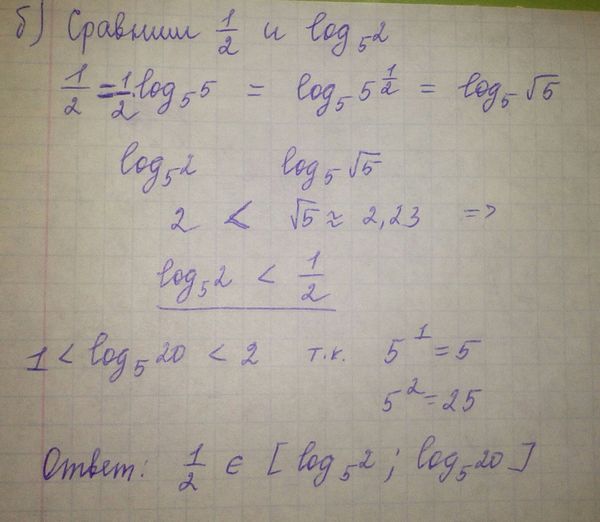 б) Сравним 1/2 и log₅2
1/2 = 1/2 · log₅5 = log₅5^(1/2) = log₅√5
log₅2 log₅√5
2 < √5 ≈ 2,23 =>
log₅2 < 1/2
1 < log₅20 < 2 т.к. 5¹ = 5
5² = 25
Ответ: 1/2 ∈ [log₅2 ; log₅20]